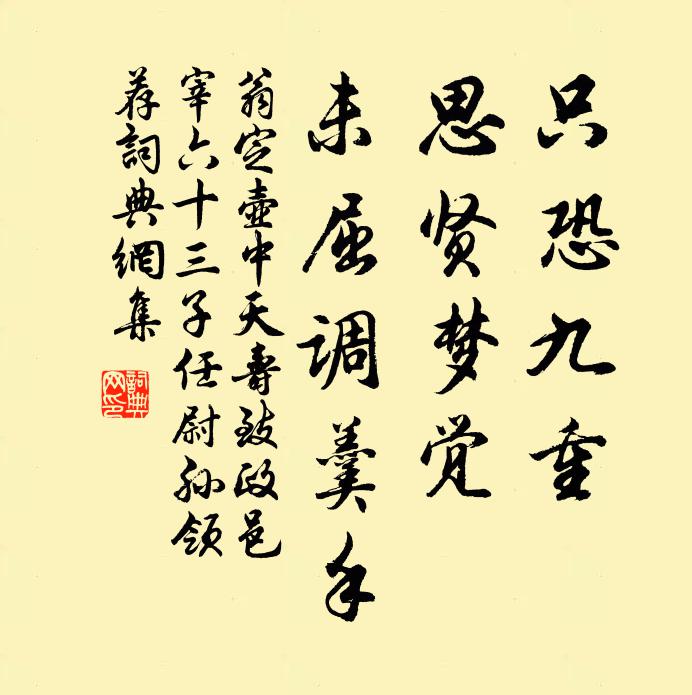 只恐九重
思贤梦觉
未屈调羹手
翁定壶中天寿致政邑
宰六十三子任尉孙领
荐詞典網集
詞典网印